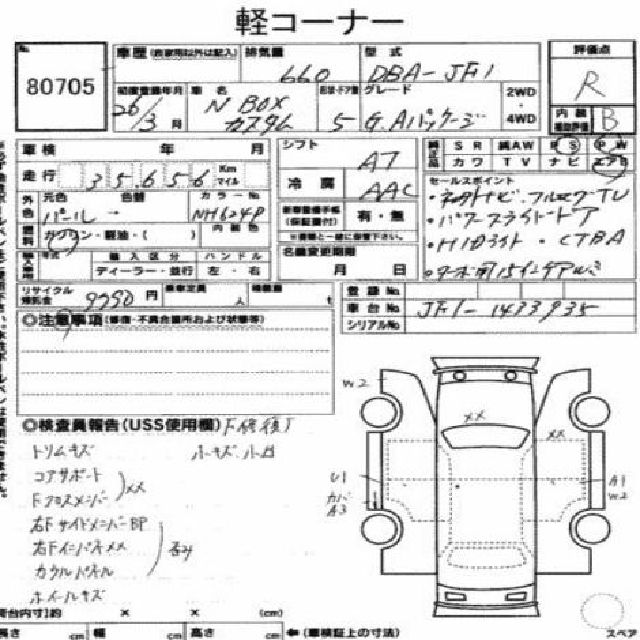 軽コーナー
No.
80705
車歴 (自家用以外は記入)
排気量
660
型式
DBA-JF1
評価点
R
初度登録年月
26/3月
車名
N BOX
カスタム
ドア数
5
グレード
G.Aパッケージ
2WD
4WD
内装
補助評価
B
車検 年 月
シフト
AT
純正品
SR 純AW PS PW
カワ TV ナビ エアB
走行
35,656
Km
マイル
冷房
AAC
セールスポイント
・ネクストナビ・フルセグTV
・パワースライドドア
・HIDライト・CTBA
・ターボ用15インチアルミ
外色
元色
色替
カラーNo.
パール
NH624P
有・無
燃料
ガソリン・軽油・( )
内装色
輸入区分
ハンドル
ディーラー・並行
左・右
名義変更期限
月 日
リサイクル
預託金
9990円
乗車定員
人
積載量
t
登録No.
車台No.
JF1-1433935
シリアルNo.
◎注意事項 (修復・不具合箇所および状態等)
◎検査員報告 (USS使用欄) F修復有
トリムキズ
コアサポート
Fクロスメンバー
XX
右FサイドメンバーBP
右FインパネXX
カウルパネル
ホイールキズ
W2
XX
XX
U1
カバ
A3
A1
W2
荷台内寸)約 × × (cm)
長さ cm 幅 cm 高さ cm
←(車検証上の寸法)
スペア